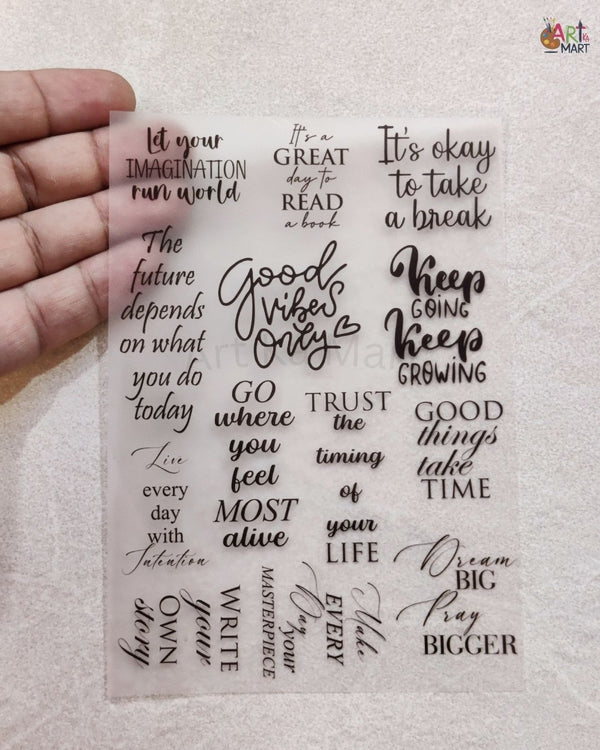 ART Ka
MART
Let your
IMAGINATION
run world
It's a
GREAT
day to
READ
a book
It's okay
to take
a break
The
future
depends
on what
you do
today
Good
vibes
only
Keep
GOING
Keep
GROWING
Art Ka Mart
GO
where
you
feel
MOST
alive
TRUST
the
timing
of
your
LIFE
GOOD
things
take
TIME
Live
every
day
with
Intention
Dream
BIG
Pray
BIGGER
WRITE
your
OWN
story
Make
EVERY
Day
your
MASTERPIECE